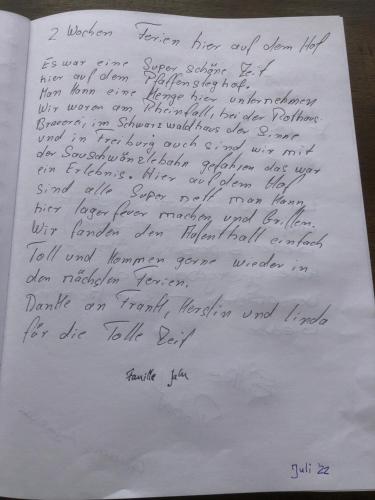 2 Wochen Ferien hier auf dem Hof
Es war eine Super schöne Zeit
hier auf dem Pfaffensteghof.
Man kann eine Menge hier unternehmen
Wir waren am Rheinfall, bei der Rothaus
Brauerei, im Schwarzwaldhaus der Sinne
und in Freiburg auch sind wir mit
der Sauschwänzlebahn gefahren das war
ein Erlebnis. Hier auf dem Hof
sind alle Super nett man kann
hier lagerfeuer machen und Grillen.
Wir fanden den Aufenthalt einfach
Toll und kommen gerne wieder in
den nächsten Ferien.
Danke an Frank, Kerstin und Linda
für die Tolle Zeit
Familie
Juli '22